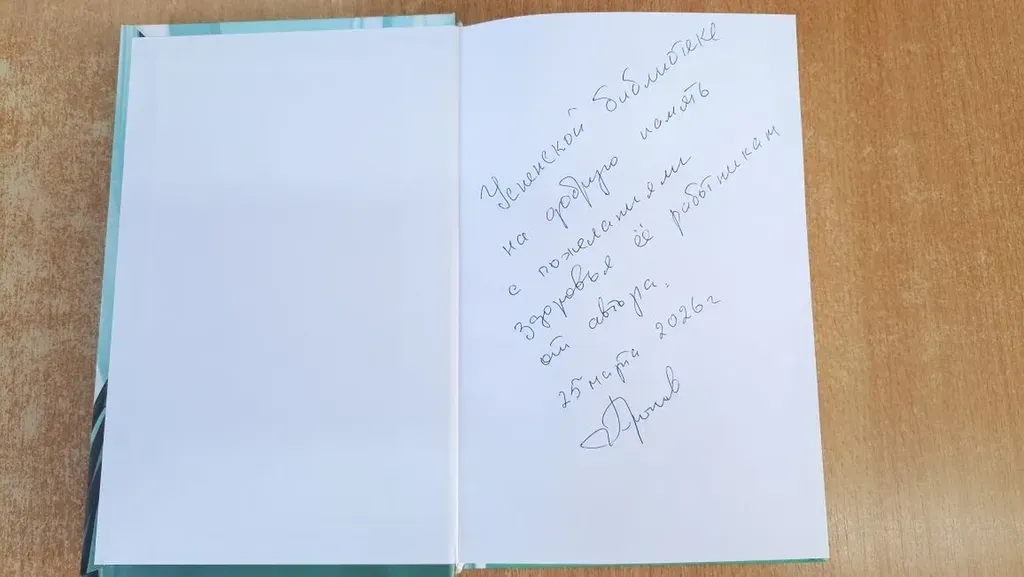 Успенской библиотеке
на добрую память
с пожеланиями
здоровья её работникам
от автора.
25 марта 2026 г